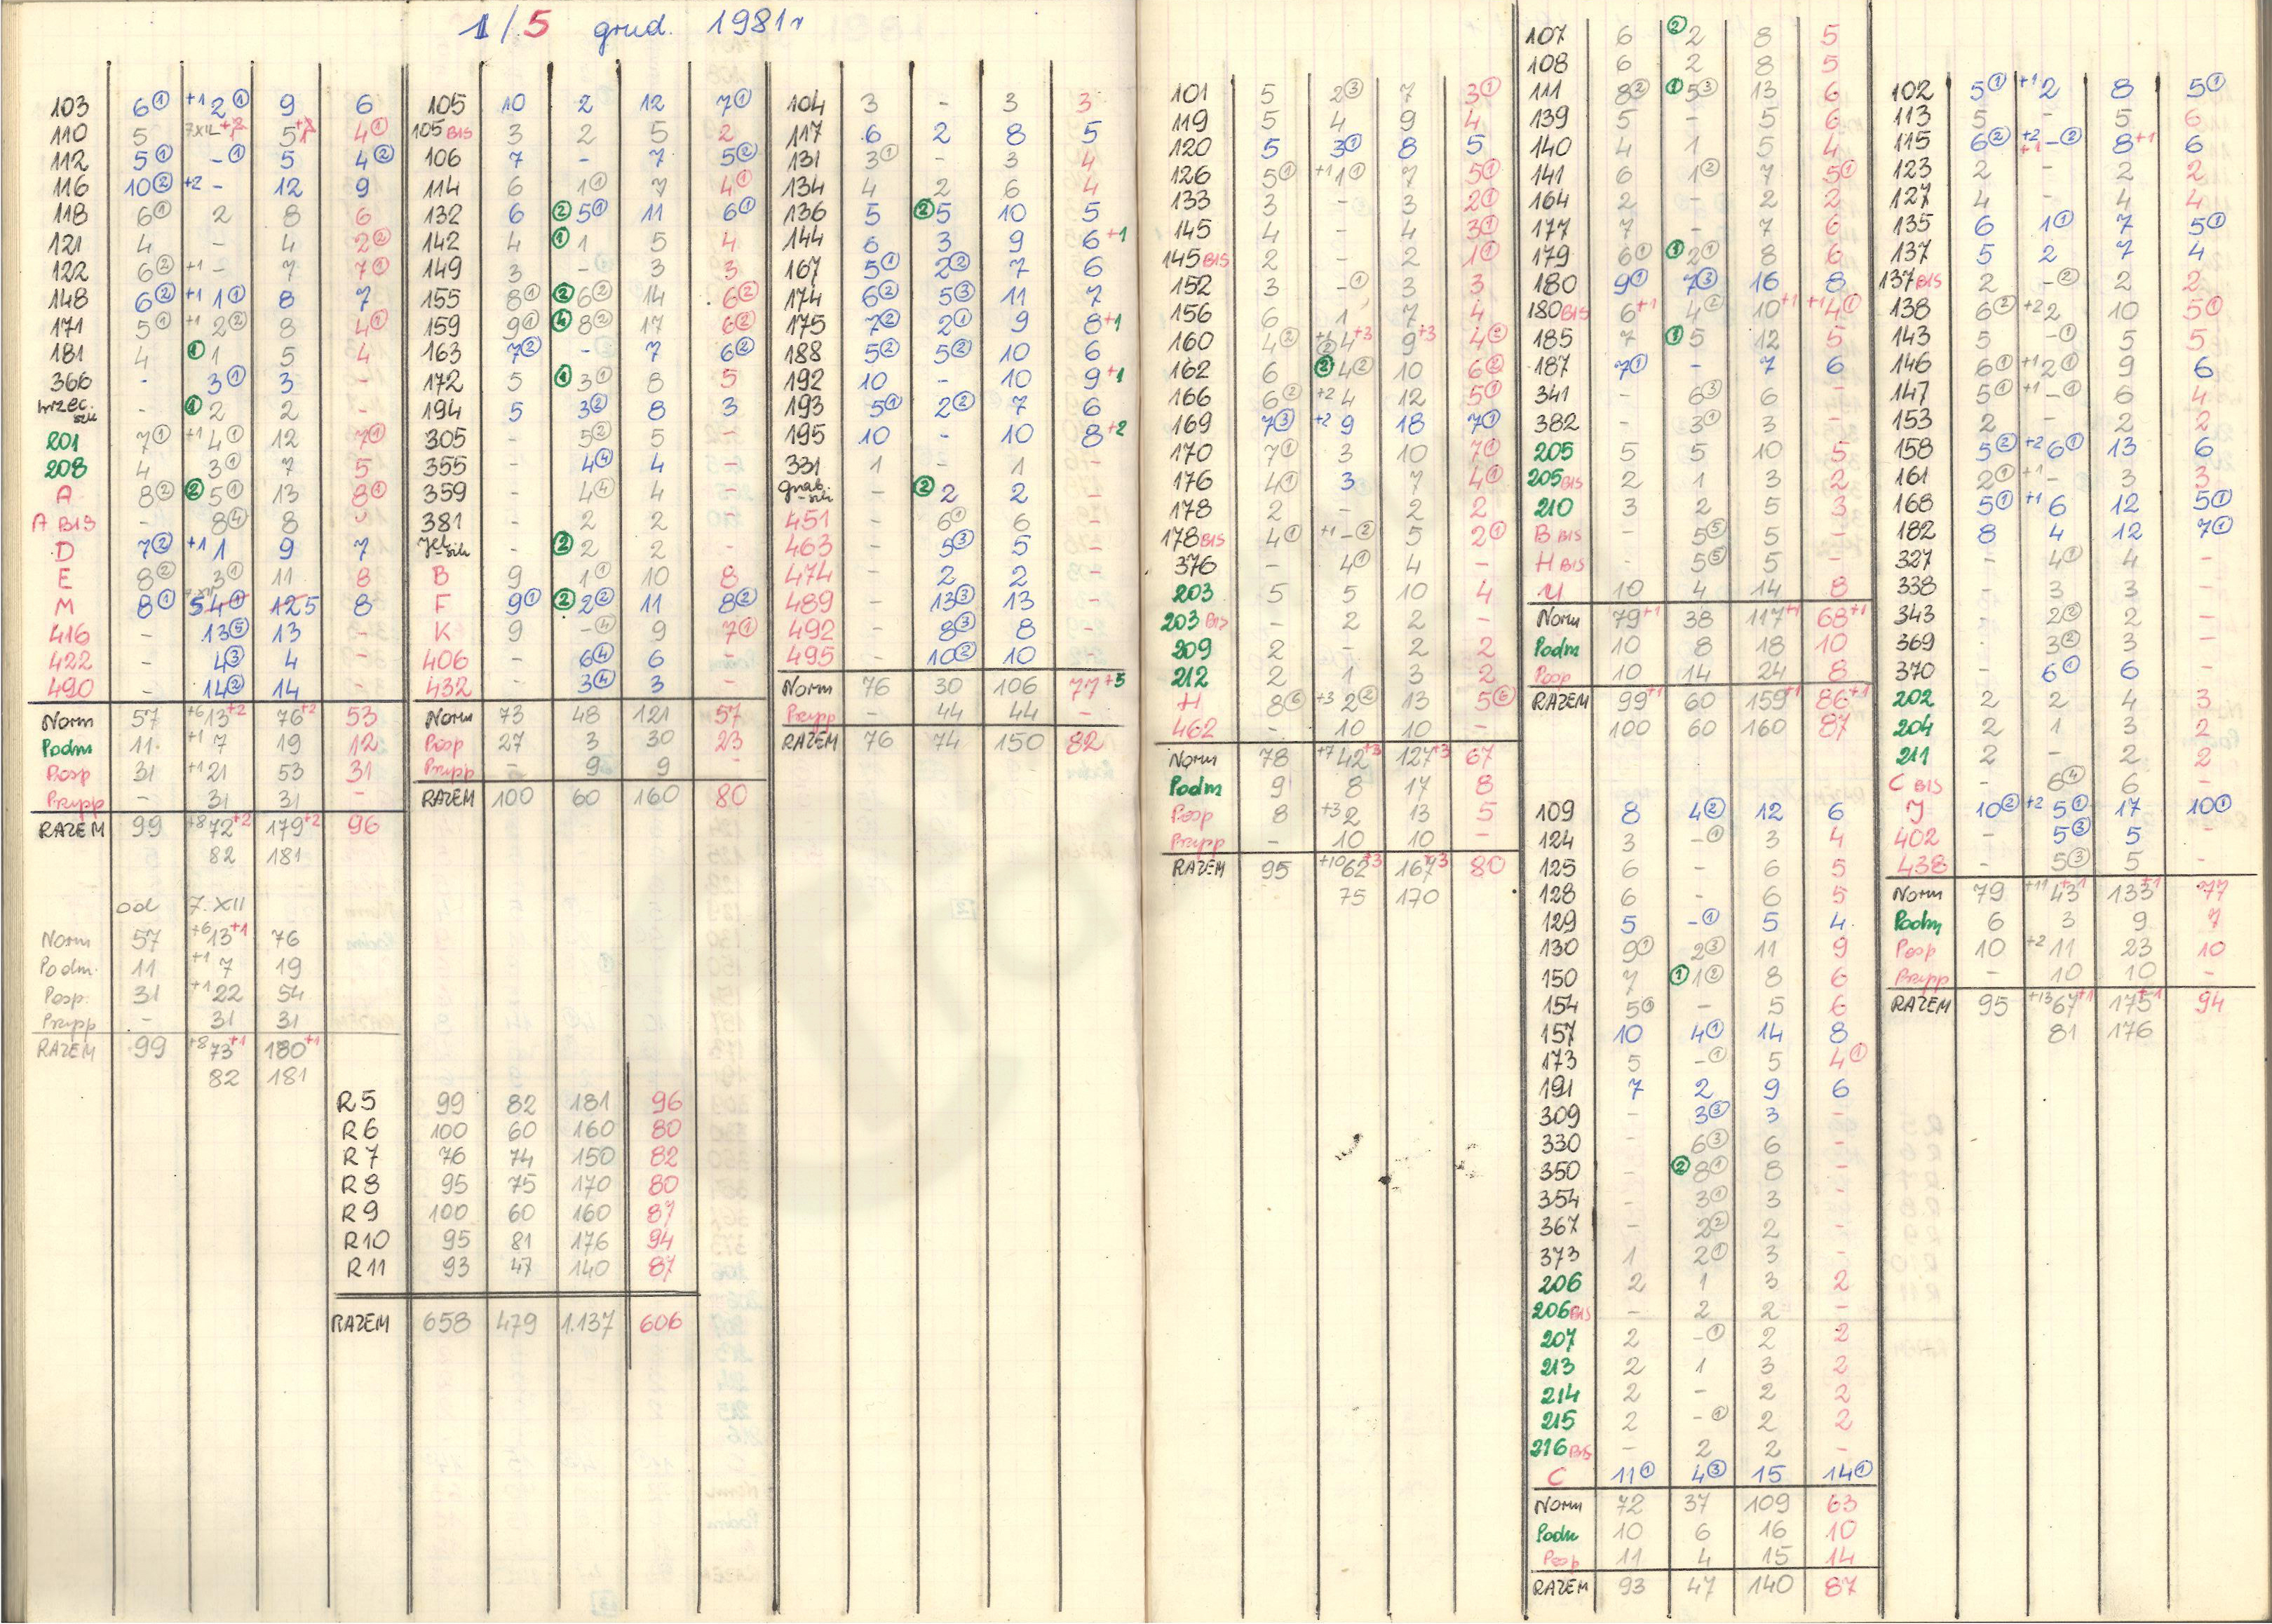 1/5 grud. 1981r
103 6① +1 2① 9 6
110 5 7XII +2 5+2 4①
112 5① -① 5 4②
116 10② +2 - 12 9
118 6① 2 8 6
121 4 - 4 2②
122 6② +1 - 7 7①
148 6② +1 1① 8 7
171 5① +1 2② 8 4①
181 4 ① 1 5 4
366 - 3① 3 -
- ① 2 2 -
201 7① +1 4① 12 7①
208 4 3① 7 5
A 8② ② 5① 13 8①
A BIS - 8④ 8
D 7② +1 1 9 7
E 8② 3① 11 8
M 8① 5 4① 12 5 8
416 - 13⑤ 13 -
422 - 4③ 4 -
490 - 14② 14 -
Norm 57 +6 13+2 76+2 53
Podm 11 +1 7 19 12
Posp 31 +1 21 53 31
Przypp - 31 31 -
RAZEM 99 +8 72+2 179+2 96
82 181
od 7.XII
Norm 57 +6 13+1 76
Podm. 11 +1 7 19
Posp. 31 +1 22 54
Przypp - 31 31
RAZEM 99 +8 73+1 180+1
82 181
105 10 2 12 7①
105 BIS 3 2 5 2
106 7 - 7 5②
114 6 1① 7 4①
132 6 ② 5① 11 6①
142 4 ① 1 5 4
149 3 - 3 3
155 8① ② 6② 14 6②
159 9① ④ 8② 17 6②
163 7② - 7 6②
172 5 ① 3① 8 5
194 5 3② 8 3
305 - 5② 5 -
355 - 4④ 4 -
359 - 4④ 4 -
381 - 2 2 -
- ② 2 2 -
B 9 1① 10 8
F 9① ② 2② 11 8②
K 9 -④ 9 7①
406 - 6④ 6 -
432 - 3④ 3 -
Norm 73 48 121 57
Posp 27 3 30 23
Przypp - 9 9 -
RAZEM 100 60 160 80
R5 99 82 181 96
R6 100 60 160 80
R7 76 74 150 82
R8 95 75 170 80
R9 100 60 160 87
R10 95 81 176 94
R11 93 47 140 87
RAZEM 658 479 1.137 606
104 3 - 3 3
117 6 2 8 5
131 3① - 3 4
134 4 2 6 4
136 5 ② 5 10 5
144 6 3 9 6+1
167 5① 2② 7 6
174 6② 5③ 11 7
175 7② 2① 9 8+1
188 5② 5② 10 6
192 10 - 10 9+1
193 5① 2② 7 6
195 10 - 10 8+2
331 1 - 1 -
- ② 2 2 -
451 - 6① 6 -
463 - 5③ 5 -
474 - 2 2 -
489 - 13③ 13 -
492 - 8③ 8 -
495 - 10② 10 -
Norm 76 30 106 77+5
Przypp - 44 44 -
RAZEM 76 74 150 82
101 5 2③ 7 3①
119 5 4 9 4
120 5 3① 8 5
126 5① +1 1① 7 5①
133 3 - 3 2①
145 4 - 4 3①
145 BIS 2 - 2 1①
152 3 -① 3 3
156 6 1 7 4
160 4② +1 ② 4+3 9+3 4②
162 6 ② 4② 10 6②
166 6② +2 4 12 5①
169 7③ +2 9 18 7①
170 7① 3 10 7①
176 4① 3 7 4①
178 2 - 2 2
178 BIS 4① +1 -② 5 2①
376 - 4① 4 -
203 5 5 10 4
203 BIS - 2 2 -
209 2 - 2 2
212 2 1 3 2
H 8⑥ +3 2② 13 5⑥
462 - 10 10 -
Norm 78 +7 42+3 127+3 67
Podm 9 8 17 8
Posp 8 +3 2 13 5
Przypp - 10 10 -
RAZEM 95 +10 62+3 167+3 80
75 170
107 6 ② 2 8 5
108 6 2 8 5
111 8② ① 5③ 13 6
139 5 - 5 6
140 4 1 5 4
141 6 1② 7 5①
164 2 - 2 2
177 7 - 7 6
179 6① ① 2① 8 6
180 9① 7③ 16 8
180 BIS 6+1 4② 10+1 +1 4①
185 7 ① 5 12 5
187 7① - 7 6
341 - 6③ 6 -
382 - 3① 3 -
205 5 5 10 5
205 BIS 2 1 3 2
210 3 2 5 3
B BIS - 5⑤ 5 -
H BIS - 5⑤ 5 -
U 10 4 14 8
Norm 79+1 38 117+1 68+1
Podm 10 8 18 10
Posp 10 14 24 8
RAZEM 99+1 60 159+1 86+1
100 60 160 87
109 8 4② 12 6
124 3 -① 3 4
125 6 - 6 5
128 6 - 6 5
129 5 -① 5 4
130 9① 2③ 11 9
150 7 ① 1② 8 6
154 5① - 5 6
157 10 4① 14 8
173 5 -① 5 4①
191 7 2 9 6
309 - 3③ 3 -
330 - 6③ 6 -
350 - ② 8① 8 -
354 - 3① 3 -
367 - 2② 2 -
373 1 2① 3 -
206 2 1 3 2
206 BIS - 2 2 -
207 2 -① 2 2
213 2 1 3 2
214 2 - 2 2
215 2 -① 2 2
216 BIS - 2 2 -
C 11① 4③ 15 14①
Norm 72 37 109 63
Podm 10 6 16 10
Posp 11 4 15 14
RAZEM 93 47 140 87
102 5① +1 2 8 5①
113 5 - 5 6
115 6② +2 +1 -② 8+1 6
123 2 - 2 2
127 4 - 4 4
135 6 1① 7 5①
137 5 2 7 4
137 BIS 2 -② 2 2
138 6② +2 2 10 5①
143 5 -① 5 5
146 6① +1 2① 9 6
147 5① +1 -① 6 4
153 2 - 2 2
158 5② +2 6① 13 6
161 2① +1 - 3 3
168 5① +1 6 12 5①
182 8 4 12 7①
327 - 4① 4 -
338 - 3 3 -
343 - 2② 2 -
369 - 3② 3 -
370 - 6① 6 -
202 2 2 4 3
204 2 1 3 2
211 2 - 2 2
C BIS - 6④ 6 -
J 10② +2 5① 17 10①
402 - 5③ 5 -
438 - 5③ 5 -
Norm 79 +11 43+1 133+1 77
Podm 6 3 9 7
Posp 10 +2 11 23 10
Przypp - 10 10 -
RAZEM 95 +13 67+1 175+1 94
81 176